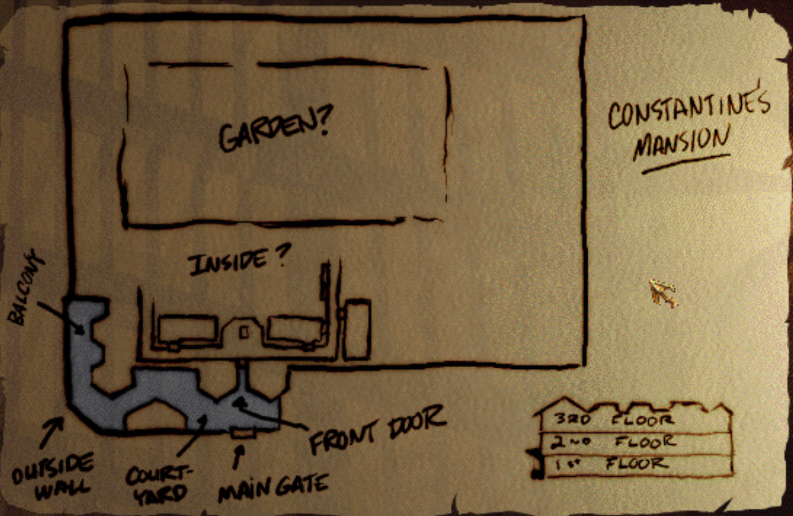 CONSTANTINE'S
MANSION
GARDEN?
INSIDE?
BALCONY
FRONT DOOR
OUTSIDE
WALL
COURT-
YARD
MAIN GATE
3RD FLOOR
2ND FLOOR
1st FLOOR